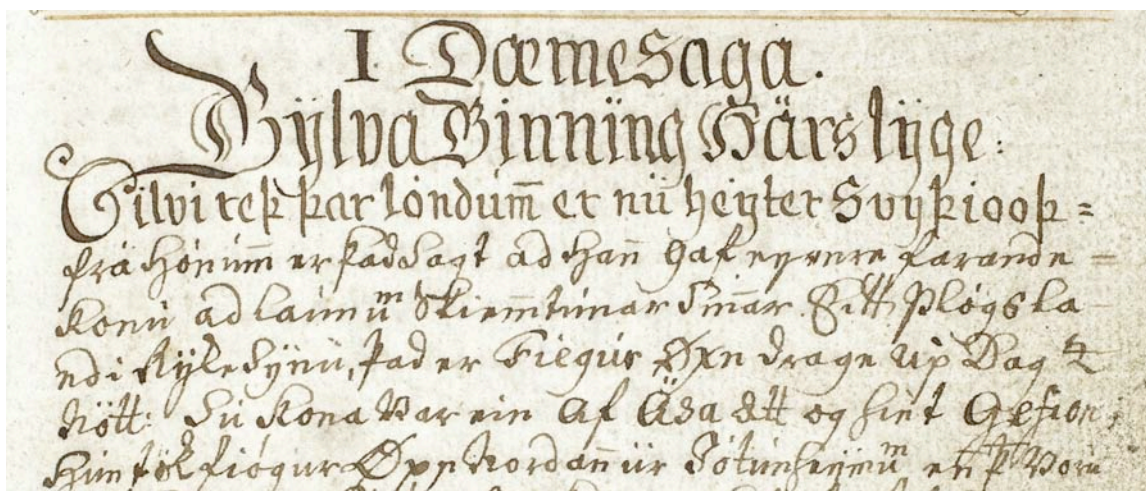 I. Dæmesaga.
Gylva Ginning Härs lÿge:
Gilvi reþ þar londum̅ er nü heyter Svÿþiooþ=
frä Hönum̅ er sad Sagt ad Han̅ gaf eyrnre farande=
Konü ad laünum Skiem̅tünar Sin̅ar Sitt Plogs la
ndi Rÿke Sÿnü, Þad er Fiegür Øxn drage up Dag &
Nött: Sü Kona Var ein af Äsa ætt og hiet Gefion,
Hün tök fiögur Øxn Nordan̅ ür Jötünheymum en Þr Vorü